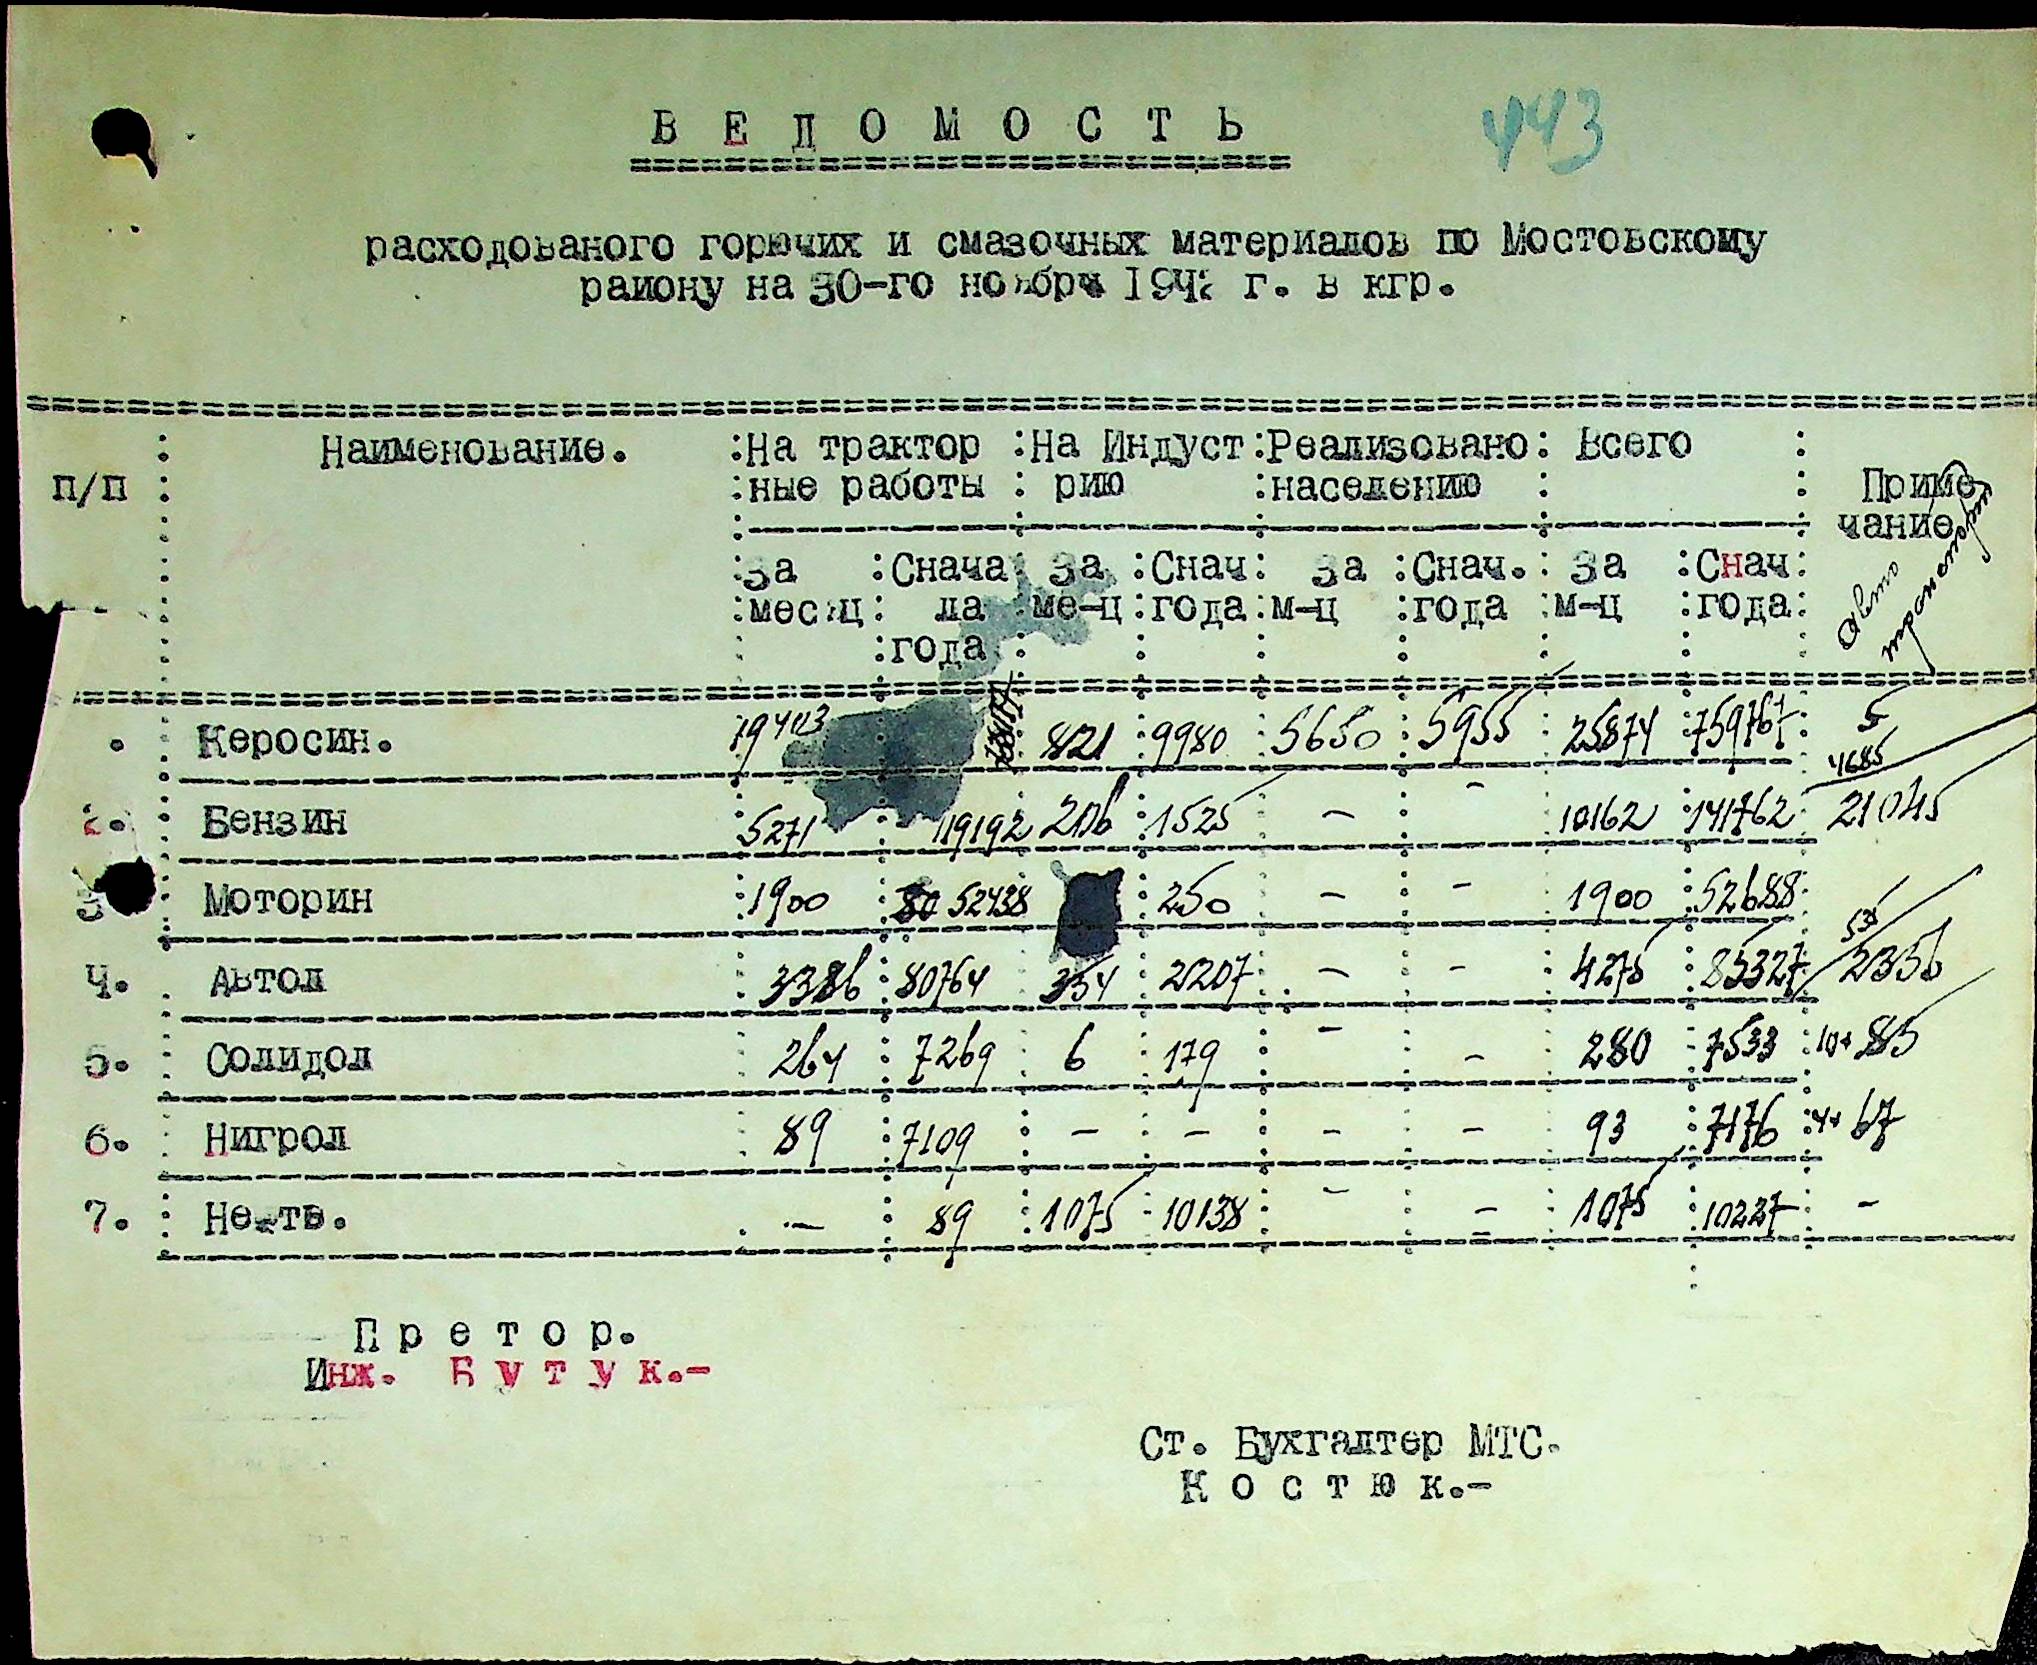 В Е Д О М О С Т Ь
443
расходованого горючих и смазочных материалов по Мостовскому
району на 30-го ноября 194 г. в кгр.
П/П Наименование. На трактор На Индуст Реализовано Всего Приме
ные работы рию населению чание
За Снача За Снач За Снач. За Снач Авто
месяц ла ме-ц года м-ц года м-ц года транспорт
года
Керосин. 19403 821 9980 5650 5955 25874 759767 5
4685
2. Бензин 5271 119192 206 1525 - - 10162 141762 21045
3 Моторин 1900 52438 250 - - 1900 52688
535
4. Автол 3386 80764 354 2207 - - 4275 85327 2356
5. Солидол 264 7269 6 179 - - 280 7533 10+ 85
6. Нигрол 89 7109 - - - - 93 7176 4+ 67
7. Нефть. - 89 1075 10138 - - 1075 10227 -
П р е т о р.
Инж. Б у т у к.-
Ст. Бухгалтер МТС.
К о с т ю к.-